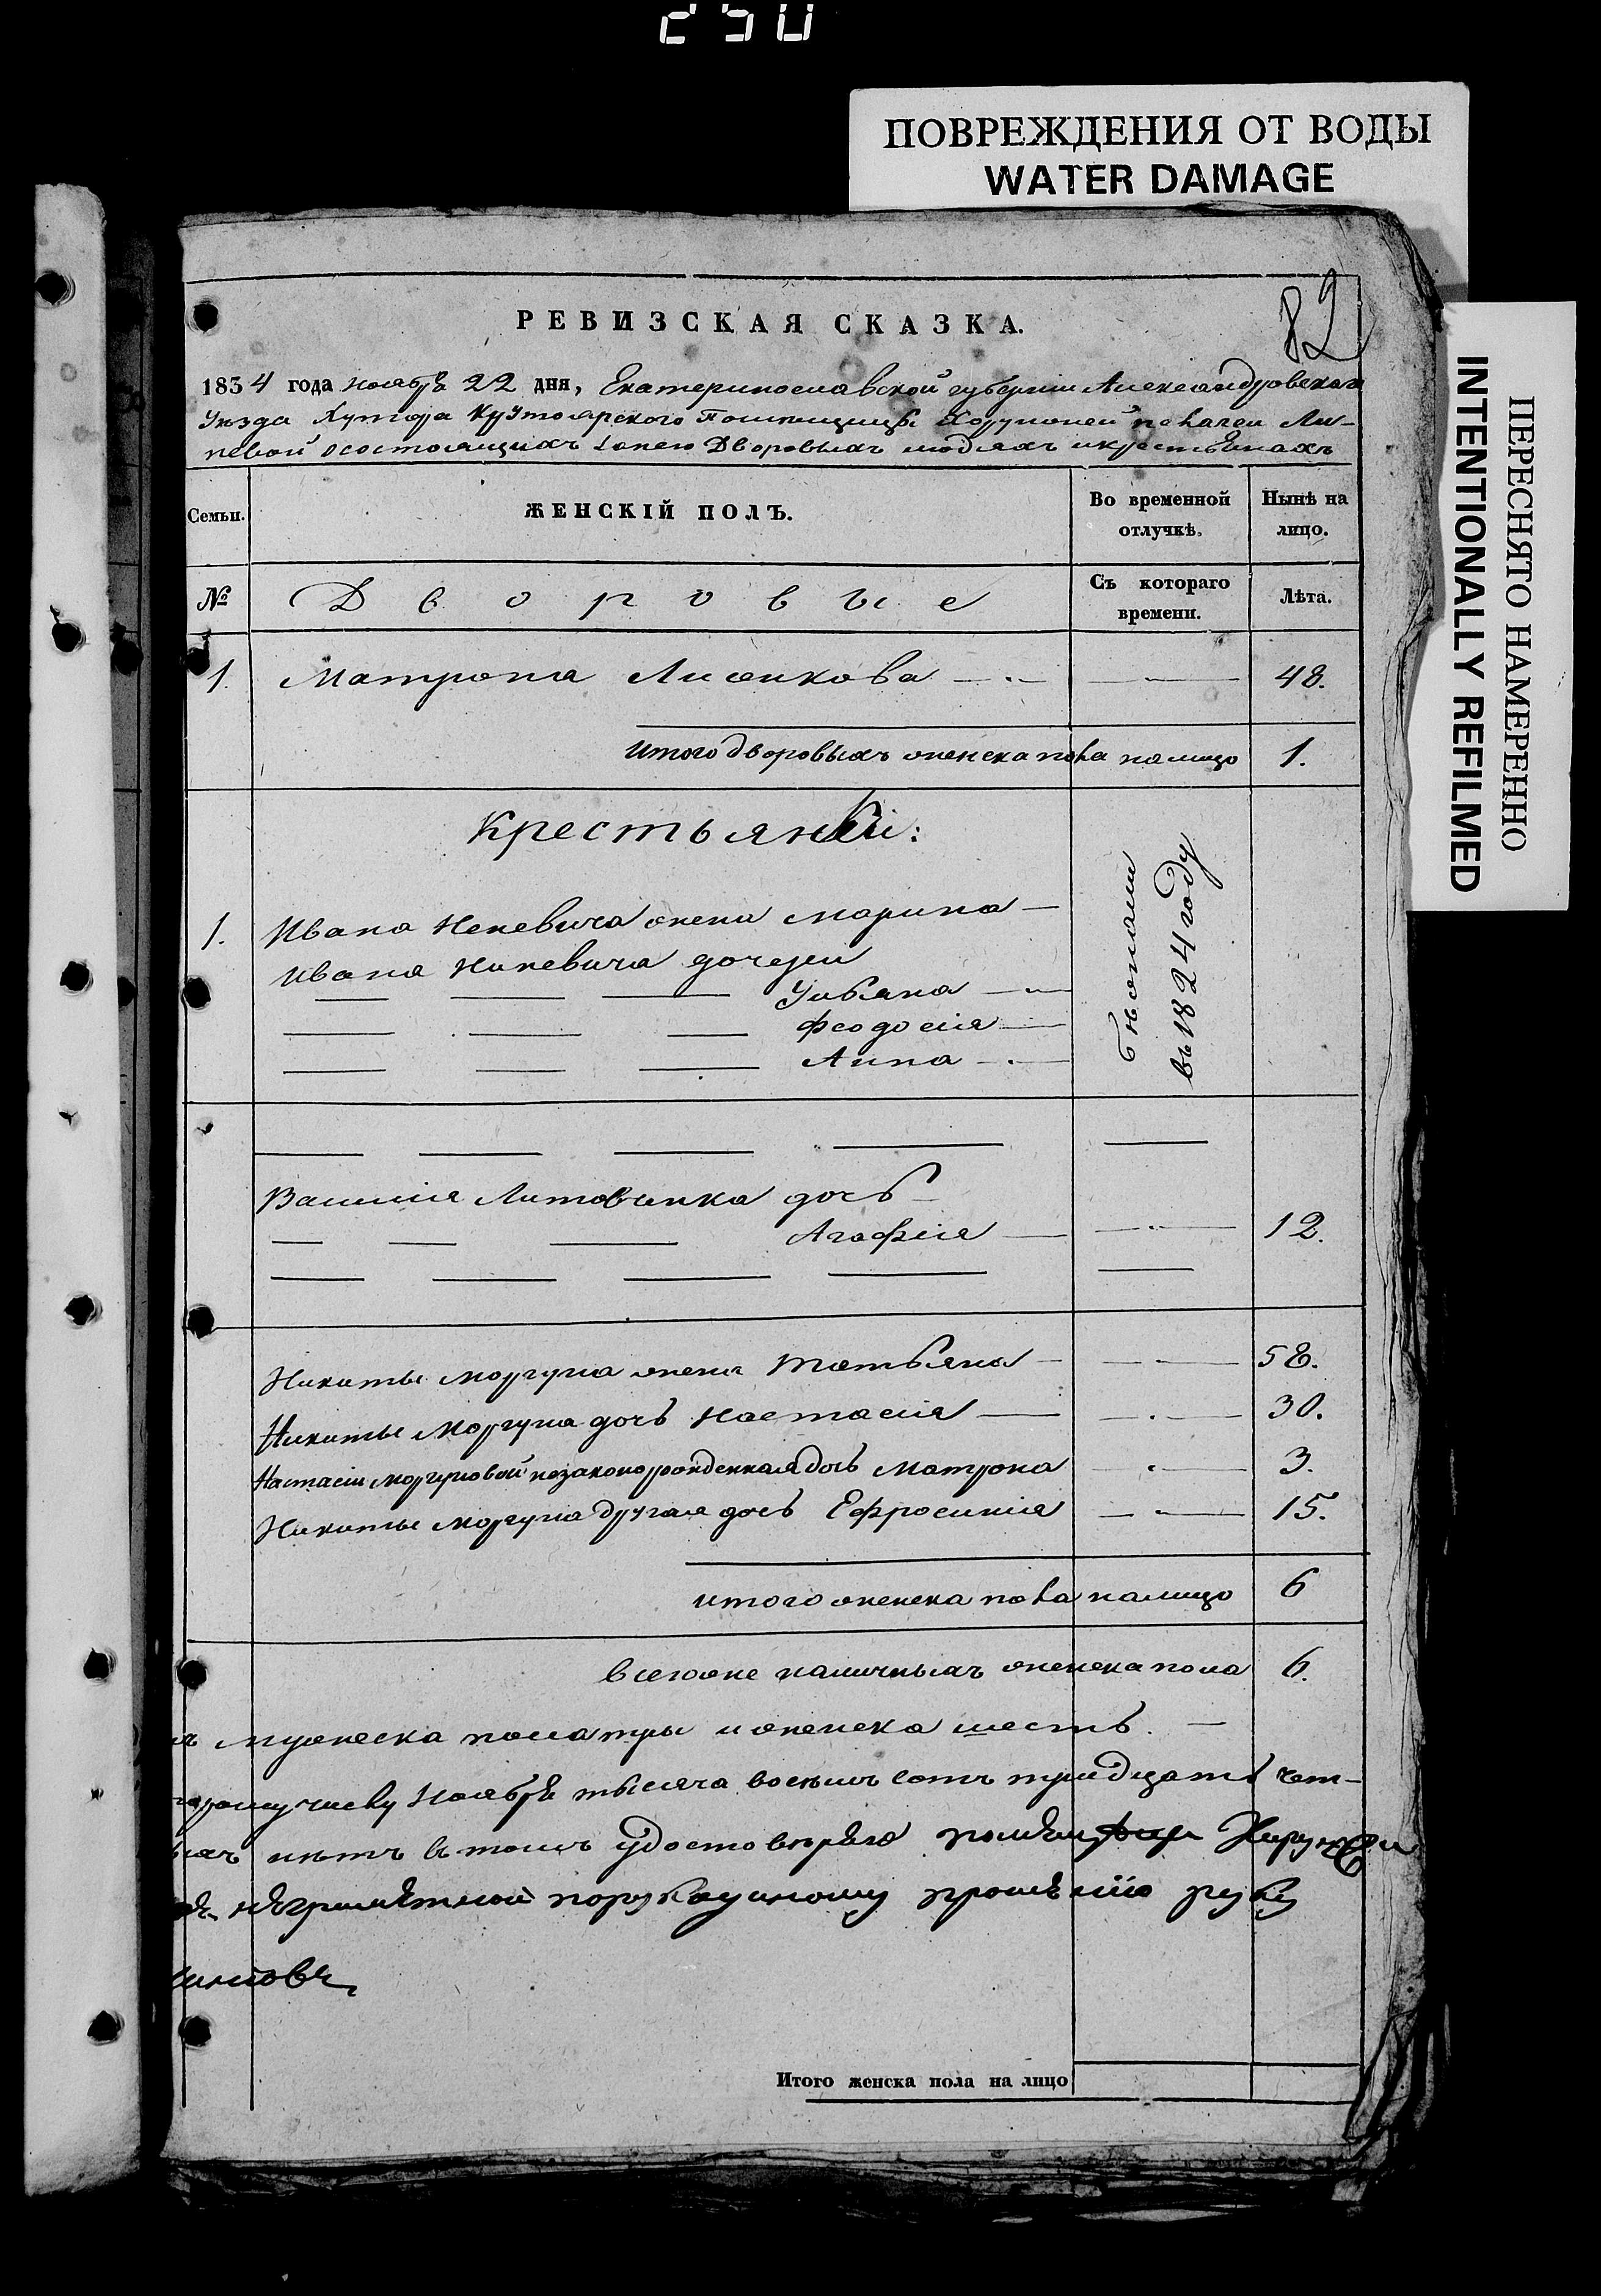 250
ПОВРЕЖДЕНИЯ ОТ ВОДЫ
WATER DAMAGE
ПЕРЕСНЯТО НАМЕРЕННО
INTENTIONALLY REFILMED
82
РЕВИЗСКАЯ СКАЗКА.
1834 года ноября 22 дня, Екатеринославской губерніи Александровскаго
Уѣзда Хутора Крутоярского Помѣщицы
осостоящихъ Дворовыхъ людяхъ икрестьянахъ
Семьи.
ЖЕНСКІЙ ПОЛЪ.
Во временной отлучкѣ.
Нынѣ на лицо.
№
Дворовые
Съ котораго времени.
Лѣта.
1. Матрона Лисенкова 48.
Итого дворовыхъ женска пола налицо 1.
Крестьянки:
1. Ивана жена Марина
Ивана дочери
Ульяна
Феодосія
Анна
бѣжали
въ 1824 году
Василія Литовченка дочь
Агафія 12.
Никиты Моргуна жена Татьяна 58.
Никиты Моргуна дочь Настасія 30.
Настасіи Моргуновой незаконорожденная дочь Матрона 3.
Никиты Моргуна другая дочь Ефросинія 15.
итого женска пола налицо 6
всего наличныхъ женска пола 6.
мужеска пола три и женска шесть.
Ноября тысяча восемь сотъ тридцать чет-
нѣтъ въ томъ удостовѣряю
неграмотной прошенію руку
Итого женска пола на лицо